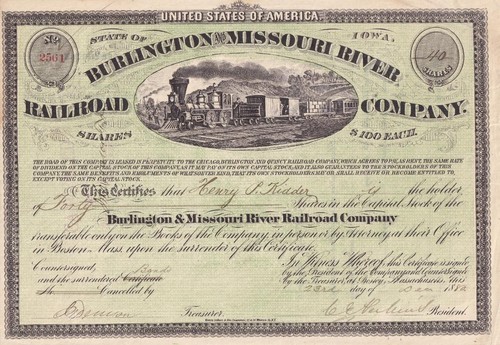 UNITED STATES OF AMERICA.
No. 2561
STATE OF IOWA.
40 SHARES
BURLINGTON AND MISSOURI RIVER
RAILROAD COMPANY.
SHARES $100 EACH.
THE ROAD OF THIS COMPANY IS LEASED IN PERPETUITY TO THE CHICAGO, BURLINGTON AND QUINCY RAILROAD COMPANY, WHICH AGREES TO PAY, AS RENT, THE SAME RATE
OF DIVIDEND ON THE CAPITAL STOCK OF THIS COMPANY AS IT MAY PAY ON ITS OWN CAPITAL STOCK, AND IT ALSO GUARANTEES TO THE STOCKHOLDERS OF THIS
COMPANY, THE SAME BENEFITS AND EMOLUMENTS OF WHATSOEVER KIND, THAT ITS OWN STOCKHOLDERS NOW OR SHALL RECEIVE, OR BECOME ENTITLED TO,
EXCEPT VOTING ON ITS CAPITAL STOCK.
This Certifies that Henry P. Kidder is the holder
of Forty Shares in the Capital Stock of the
Burlington & Missouri River Railroad Company
transferable only on the Books of the Company in person or by Attorney at their Office
in Boston Mass. upon the surrender of this Certificate.
Countersigned,
and the surrendered Certificate Bonds
Cancelled by
In Witness Whereof, this Certificate is signed
by the President of the Company and Countersigned
by the Treasurer, at Boston, Massachusetts, this
23rd day of
Treasurer.
President.